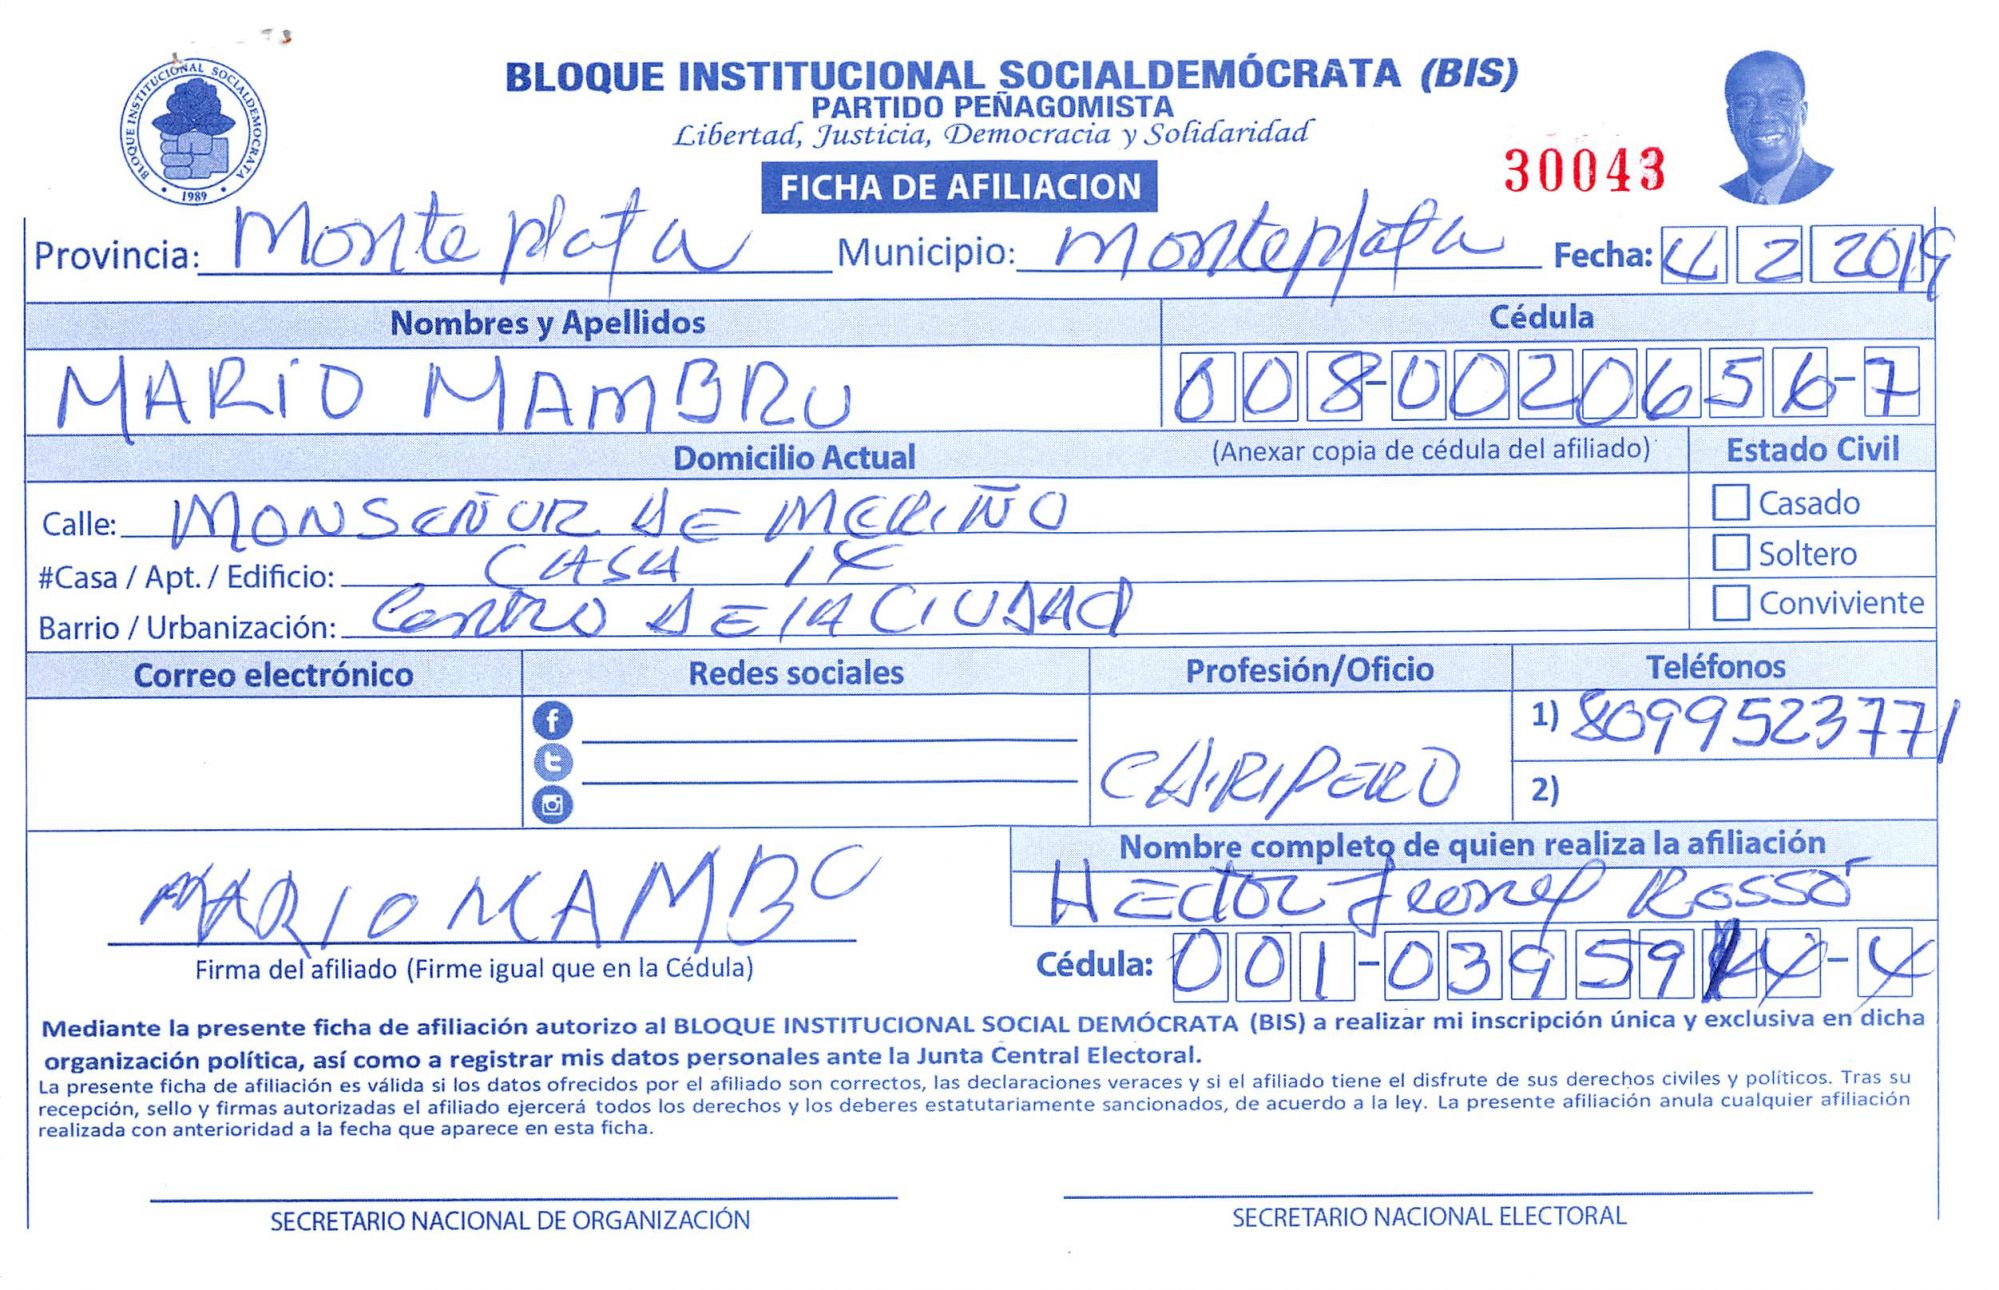 BLOQUE INSTITUCIONAL SOCIALDEMÓCRATA (BIS)
PARTIDO PEÑAGOMISTA
Libertad, Justicia, Democracia y Solidaridad
BLOQUE INSTITUCIONAL SOCIALDEMOCRATA
1989
FICHA DE AFILIACION
30043
Provincia: Monte plata Municipio: Monteplata Fecha: 4 2 2019
Nombres y Apellidos Cédula
MARIO MAMBRU 008-0020656-7
Domicilio Actual (Anexar copia de cédula del afiliado) Estado Civil
Calle: MONSEÑOR DE MERIÑO Casado
#Casa / Apt. / Edificio: CASA 14 Soltero
Barrio / Urbanización: Centro DE LA CIUDAD Conviviente
Correo electrónico Redes sociales Profesión/Oficio Teléfonos
1) 8099523771
CARIPERO
2)
Nombre completo de quien realiza la afiliación
MARIO MAMBO HECTOR Leonel Rossó
Firma del afiliado (Firme igual que en la Cédula) Cédula: 001-0395914-4
Mediante la presente ficha de afiliación autorizo al BLOQUE INSTITUCIONAL SOCIAL DEMÓCRATA (BIS) a realizar mi inscripción única y exclusiva en dicha
organización política, así como a registrar mis datos personales ante la Junta Central Electoral.
La presente ficha de afiliación es válida si los datos ofrecidos por el afiliado son correctos, las declaraciones veraces y si el afiliado tiene el disfrute de sus derechos civiles y políticos. Tras su
recepción, sello y firmas autorizadas el afiliado ejercerá todos los derechos y los deberes estatutariamente sancionados, de acuerdo a la ley. La presente afiliación anula cualquier afiliación
realizada con anterioridad a la fecha que aparece en esta ficha.
SECRETARIO NACIONAL DE ORGANIZACIÓN SECRETARIO NACIONAL ELECTORAL